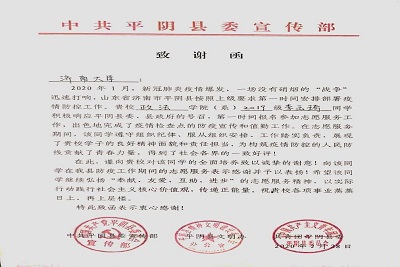 中共平阴县委宣传部
致谢函
济南大学:
2020年1月,新冠肺炎疫情爆发,一场没有硝烟的“战争”
迅速打响,山东省济南市平阴县按照上级要求第一时间安排部署疫
情防控工作。贵校 政法 学院(系)2017级 同学
积极响应平阴县委、县政府的号召,第一时间报名参加志愿服务工
作,出色地完成了疫情检查点的防疫宣传和值勤工作。在志愿服务
期间,该同学遵守组织纪律,服从组织安排,工作踏实负责,展现
了贵校学子的良好精神面貌和责任担当,为构筑疫情防控的人民防
线贡献了青春力量,得到了社会各界的一致好评!
在此,谨向贵校对该同学的全面培养致以诚挚的谢意!向该同
学在我县防疫工作期间的志愿服务表示感谢并予以表扬!希望该同
学继续弘扬“奉献、友爱、互助、进步”的志愿服务精神,以实际
行动践行社会主义核心价值观,传递正能量。祝贵校各项事业蒸蒸
日上,再上层楼。
特此致函表示衷心感谢!
中共平阴县委宣传部 平阴县文明办 共青团平阴县委
2020年3月28日